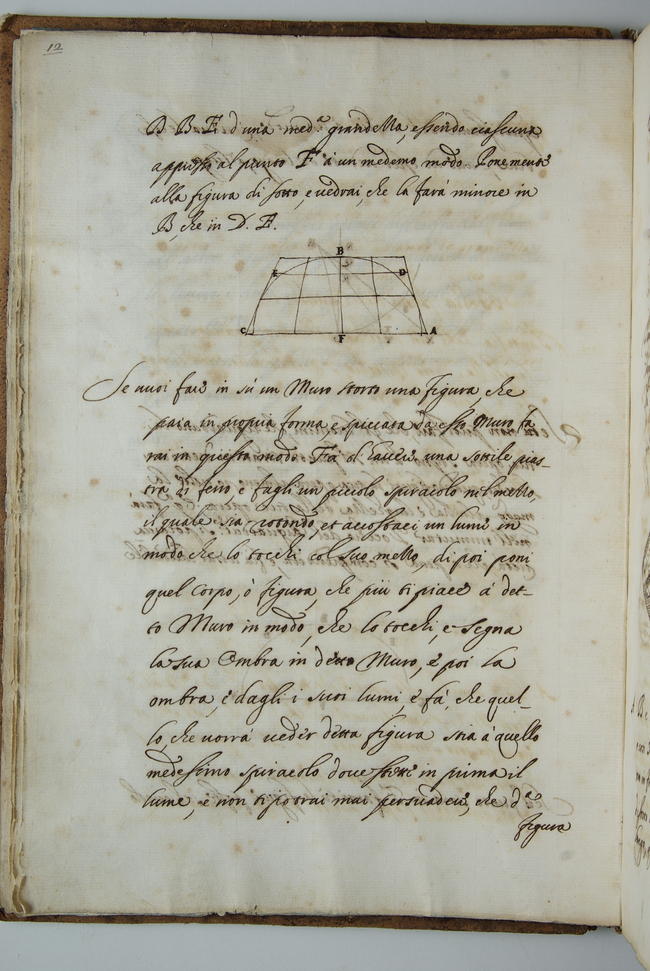 12
D B E d'una med.ª grandezza, essendo ciascuna
appresso al punto F à un medemo modo. Ponementi
alla figura di sotto, e vedrai, che la farà minore in
B, che in D. E.
B
E D
C F A
Se vuoi fare in sù un Muro storto una figura, che
paia in propria forma e spiccata da esso Muro fa
rai in questo modo. Fà d'havere una sottile pias-
tra di ferro, e fagli un piccolo spiracolo nel mezzo,
il quale sia rotondo, et accostaci un lume in
modo che lo tocchi col suo mezzo, di poi poni
quel Corpo, ò figura, che più ti piace à det-
to Muro in modo, che lo tocchi, e segna
la sua Ombra in detto Muro, e poi la
ombra, e dagli i suoi lumi, e fà, che quel-
lo, che vorrà veder detta figura stia à quello
medesimo spiracolo doue stette in prima il
lume, e non ti potrai mai persuadere, che d.ª
figura